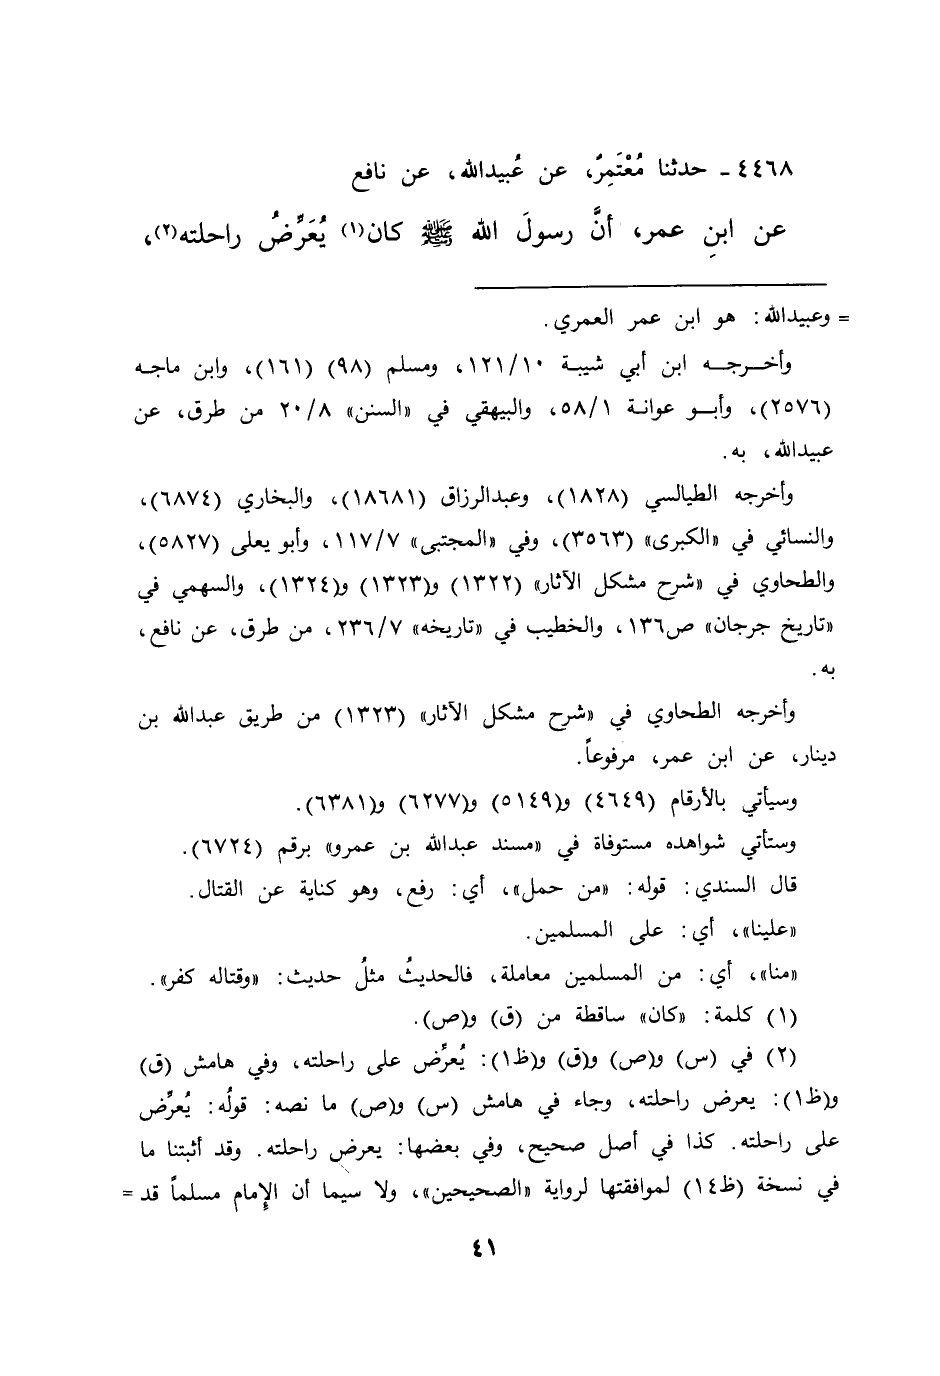 ٤٤٦٨ - حدثنا مُعْتَمِرٌ، عن عُبيدالله، عن نافع
عن ابنِ عمر، أنَّ رسولَ الله ﷺ كان(١) يُعَرِّضُ راحلته(٢)،
= وعبيدالله: هو ابن عمر العمري.
وأخرجه ابن أبي شيبة ١٢١/١٠، ومسلم (٩٨) (١٦١)، وابن ماجه
(٢٥٧٦)، وأبو عوانة ٥٨/١، والبيهقي في «السنن» ٢٠/٨ من طرق، عن
عبيدالله، به.
وأخرجه الطيالسي (١٨٢٨)، وعبدالرزاق (١٨٦٨١)، والبخاري (٦٨٧٤)،
والنسائي في «الكبرى» (٣٥٦٣)، وفي «المجتبى» ١١٧/٧، وأبو يعلى (٥٨٢٧)،
والطحاوي في «شرح مشكل الآثار» (١٣٢٢) و(١٣٢٣) و(١٣٢٤)، والسهمي في
«تاريخ جرجان» ص١٣٦، والخطيب في «تاريخه» ٢٣٦/٧، من طرق، عن نافع،
به.
وأخرجه الطحاوي في «شرح مشكل الآثار» (١٣٢٣) من طريق عبدالله بن
دينار، عن ابن عمر، مرفوعاً.
وسيأتي بالأرقام (٤٦٤٩) و(٥١٤٩) و(٦٢٧٧) و(٦٣٨١).
وستأتي شواهده مستوفاة في «مسند عبدالله بن عمرو» برقم (٦٧٢٤).
قال السندي: قوله: «من حمل»، أي: رفع، وهو كناية عن القتال.
«علينا»، أي: على المسلمين.
«منا»، أي: من المسلمين معاملة، فالحديثُ مثلُ حديث: «وقتاله كفر».
(١) كلمة: «كان» ساقطة من (ق) و(ص).
(٢) في (س) و(ص) و(ق) و(ظ١): يُعرِّض على راحلته، وفي هامش (ق)
و(ظ١): يعرض راحلته، وجاء في هامش (س) و(ص) ما نصه: قولُه: يُعرِّض
على راحلته. كذا في أصل صحيح، وفي بعضها: يعرض راحلته. وقد أثبتنا ما
في نسخة (ظ١٤) لموافقتها لرواية «الصحيحين»، ولا سيما أن الإمام مسلماً قد =
٤١